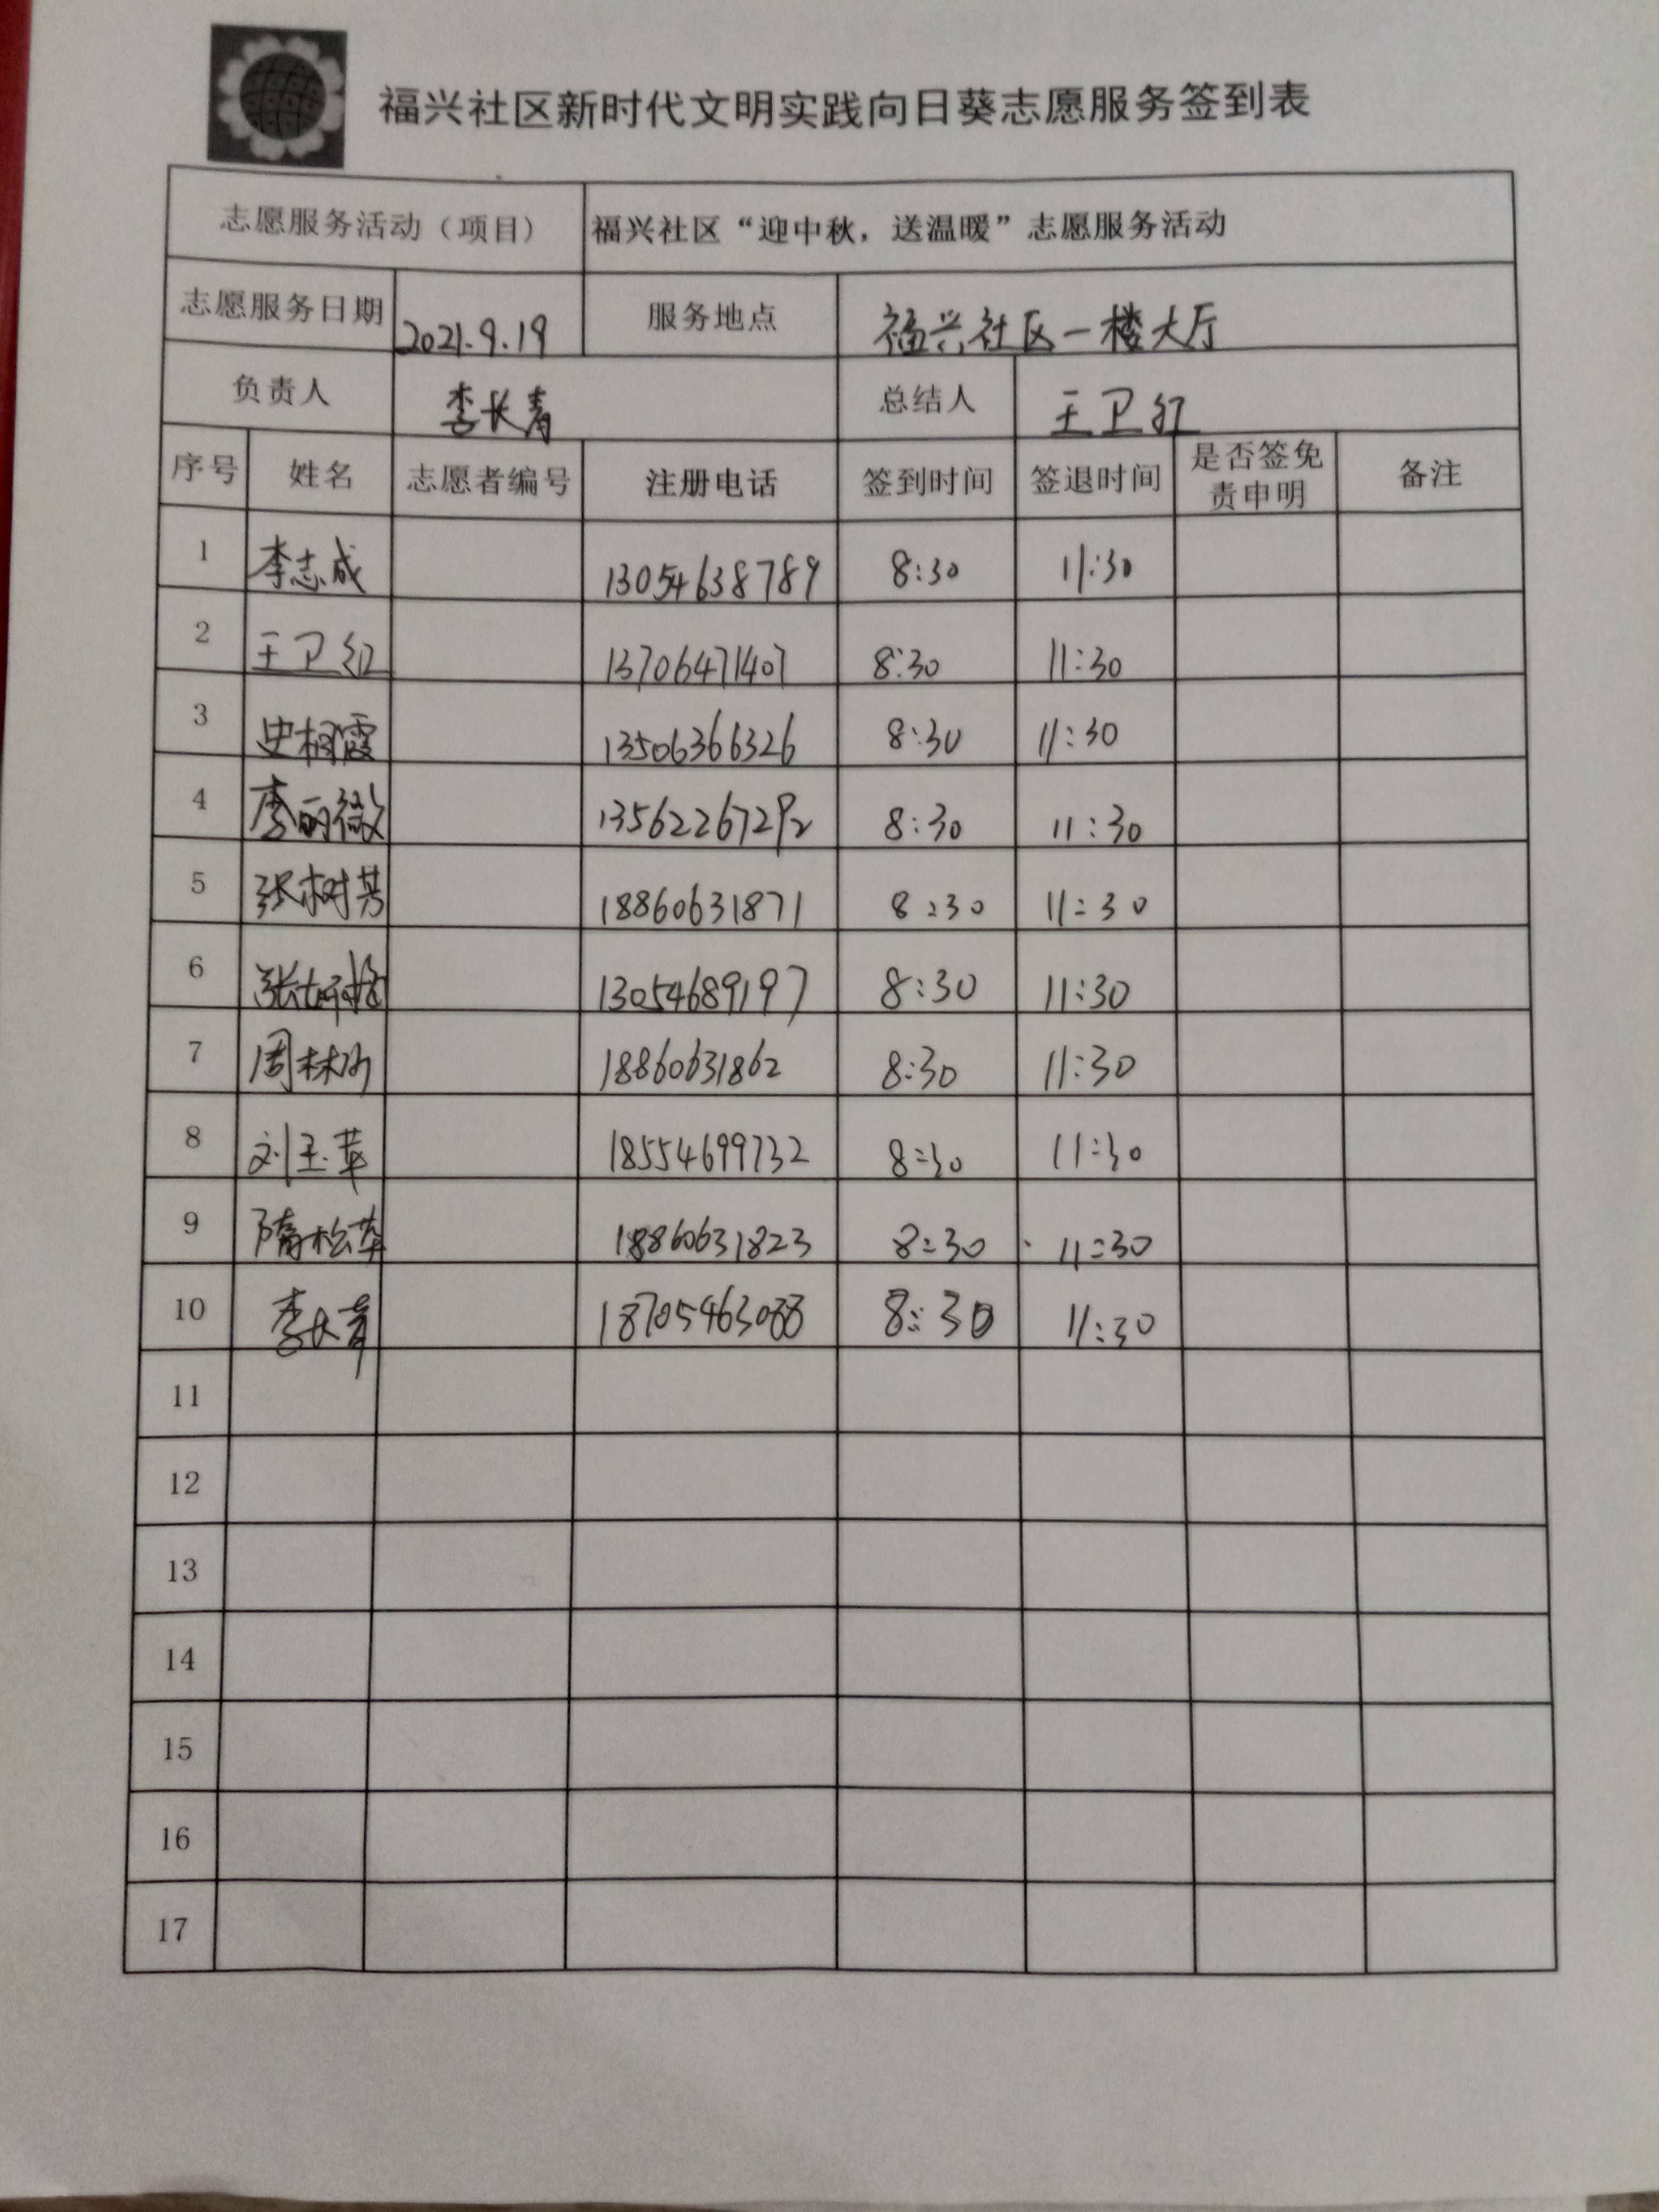 福兴社区新时代文明实践向日葵志愿服务签到表
志愿服务活动（项目） 福兴社区“迎中秋，送温暖”志愿服务活动
志愿服务日期 2021.9.19 服务地点 福兴社区一楼大厅
负责人 李长青 总结人 王卫红
序号 姓名 志愿者编号 注册电话 签到时间 签退时间 是否签免责申明 备注
1 李志成 13054638789 8:30 11:30
2 王卫红 13706471407 8:30 11:30
3 13506366326 8:30 11:30
4 李丽微 13562267292 8:30 11:30
5 张树芳 18860631871 8:30 11:30
6 13054689197 8:30 11:30
7 18860631862 8:30 11:30
8 刘玉苹 18554699732 8:30 11:30
9 隋松苹 18860631823 8:30 11:30
10 李长青 18705463088 8:30 11:30
11
12
13
14
15
16
17